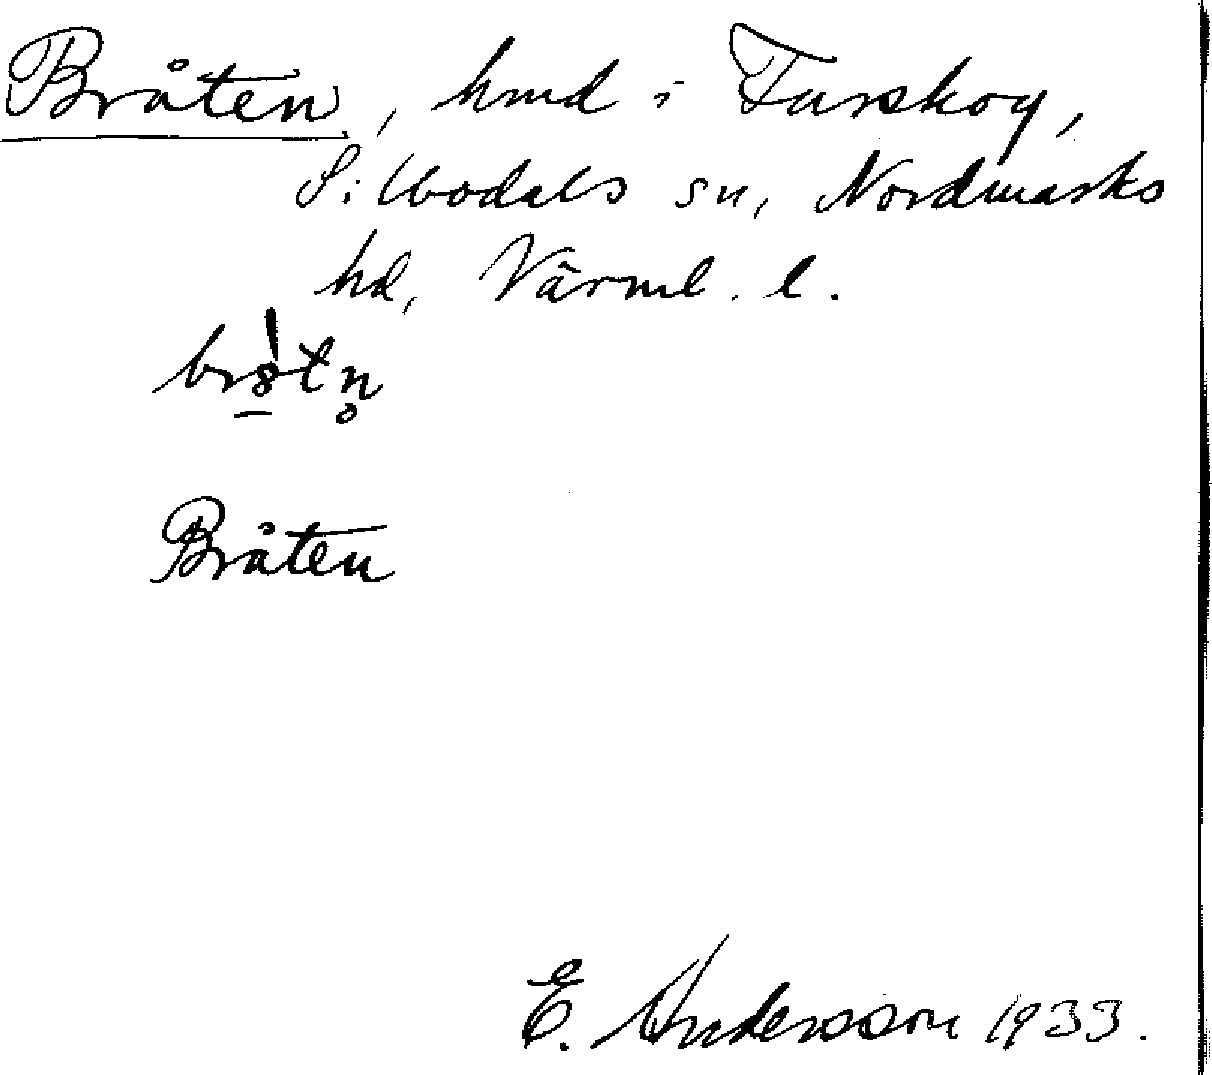 Bråten, hmd i Turskog,
Silbodals sn, Nordmarks
hd, Värml. l.
Bråten
E. Andersson 1933.